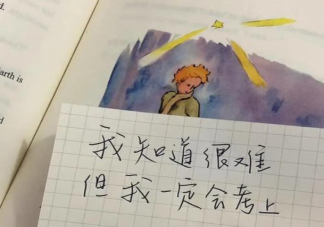 d.
arth is
d
我知道很难
但我一定会考上